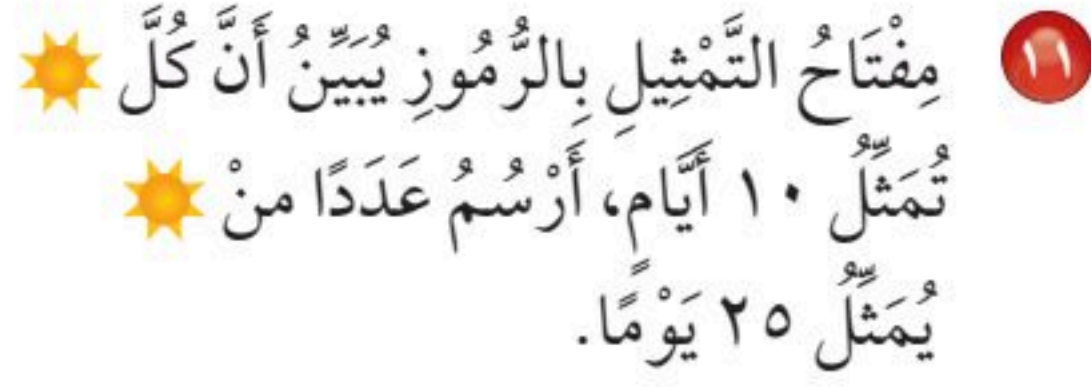 ١١ مِفْتَاحُ التَّمْثِيلِ بِالرُّمُوزِ يُبَيِّنُ أَنَّ كُلَّ
تُمَثِّلُ ١٠ أَيَّامٍ، أَرْسُمُ عَدَدًا منْ
يُمَثِّلُ ٢٥ يَوْمًا.